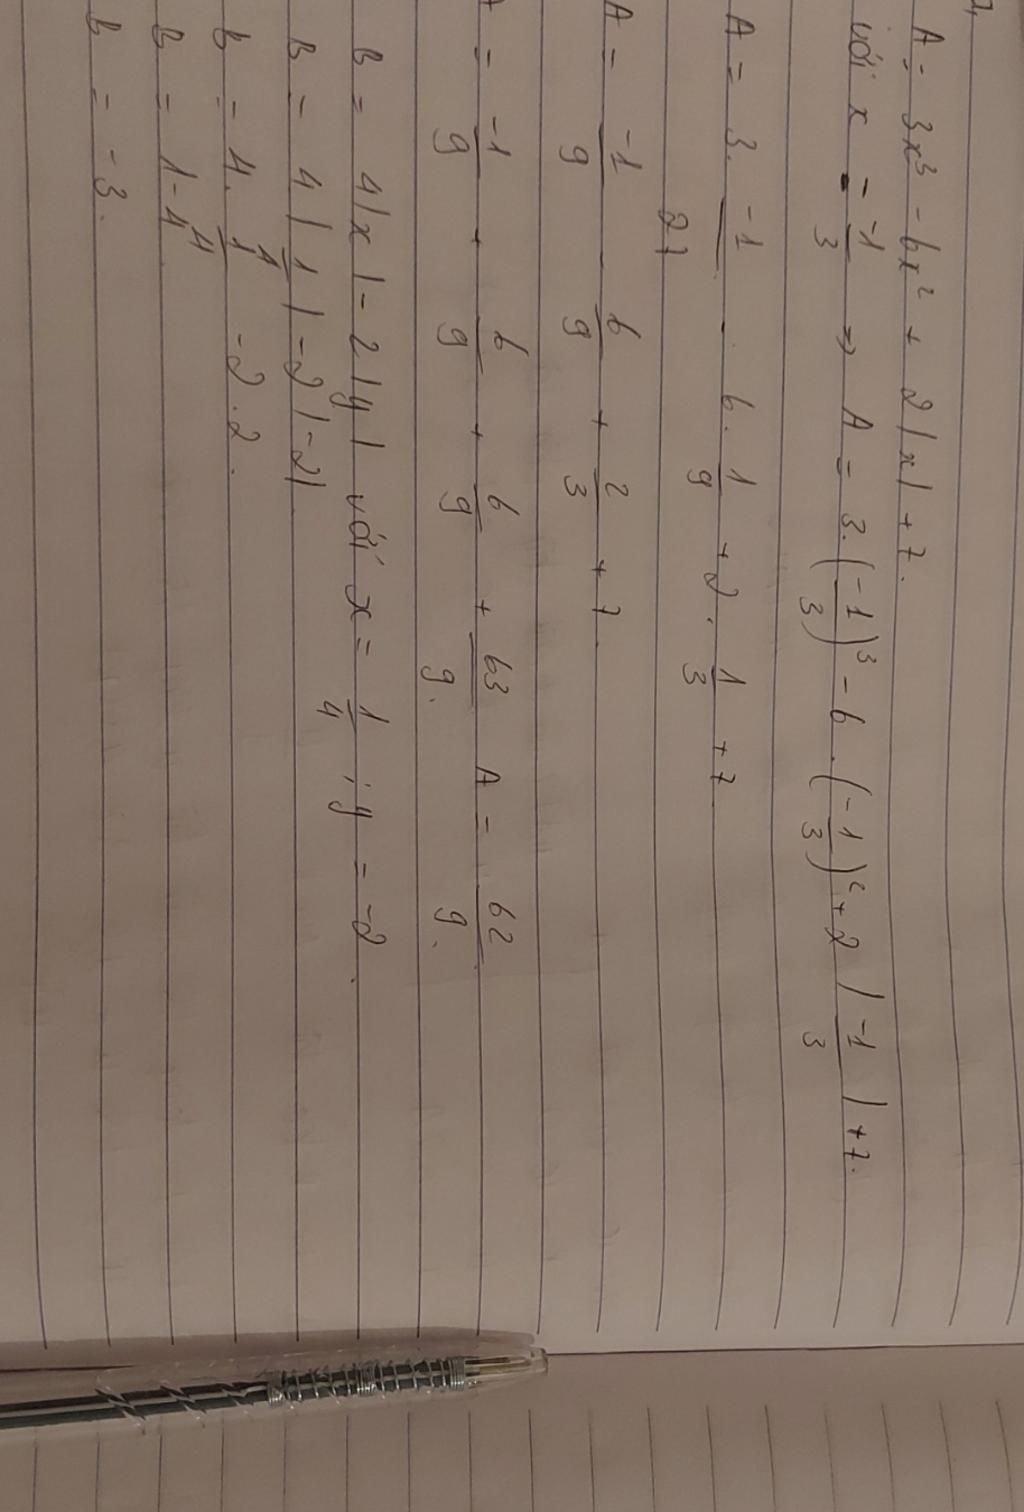 A = 3x³ - 6x² + 2|x| + 7.
với x = -1/3 => A = 3.(-1/3)³ - 6.(-1/3)² + 2|-1/3| + 7.
A = 3. -1/27 - 6. 1/9 + 2. 1/3 + 7
A = -1/9 - 6/9 + 2/3 + 7.
A = -1/9 + 6/9 + 6/9 + 63/9. A = 62/9.
B = 4|x| - 2|y| với x = 1/4 ; y = -2.
B = 4|1/4| - 2|-2|
B = 4. 1/4 - 2.2.
B = 1 - 4
B = -3.